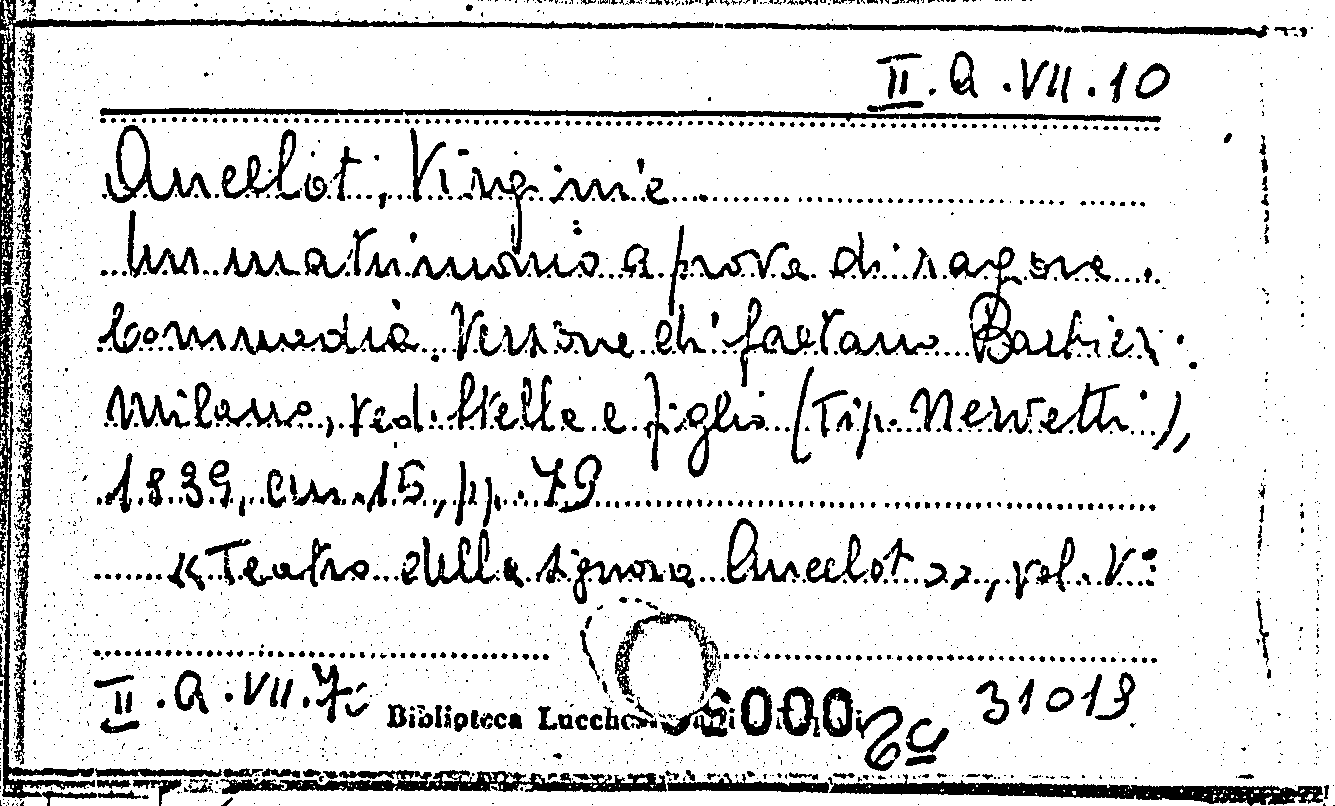 II.A.VII.10
Ancelot, Virginie
Un matrimonio a prova di ragione.
Commedia. Versione di Gaetano Barbieri.
Milano, red. Stella e figlio (Tip. Nervetti),
1839, cm. 15, pp. 79
«Teatro della signora Ancelot», vol. V°
II.A.VII.7c
Biblioteca
6000
31019